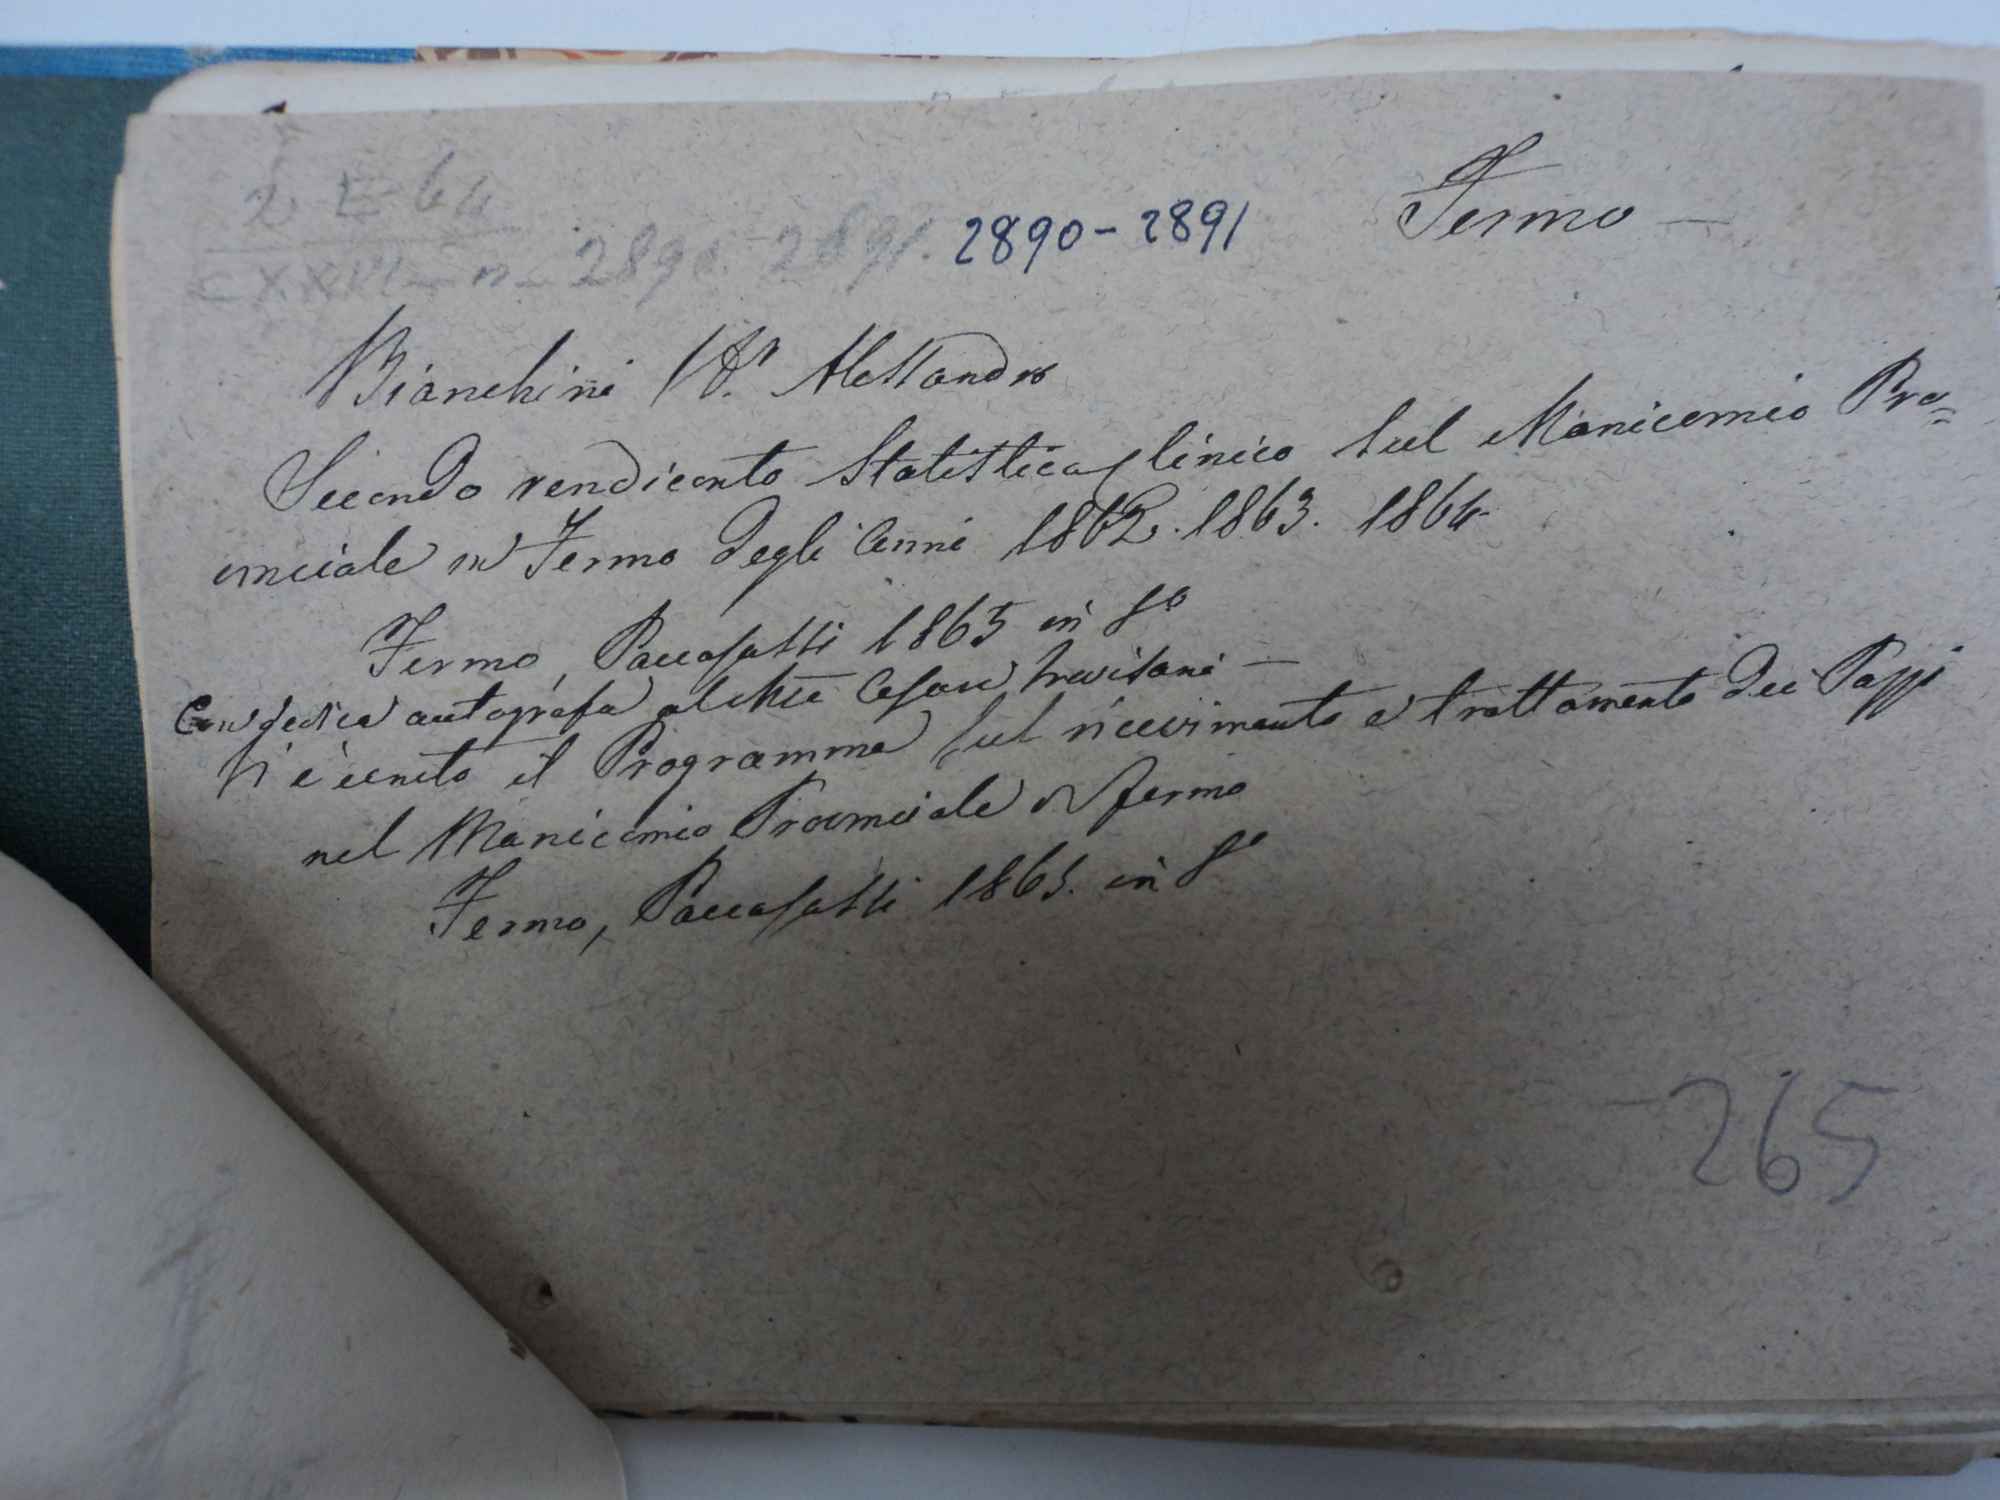 Fermo
2 E 64
CXXVI - n - 2890-2891. 2890-2891
Bianchini Dr. Alessandro
Secondo rendiconto statistico clinico sul Manicomio Pro=
vinciale di Fermo degli anni 1862. 1863. 1864
Fermo, Paccasassi 1865 in 8º
Con dedica autografa al Cesare Trevisani -
Si è unito il Programma sul ricevimento e trattamento dei Pazzi
nel Manicomio Provinciale di Fermo
Fermo, Paccasassi 1865. in 8º
265